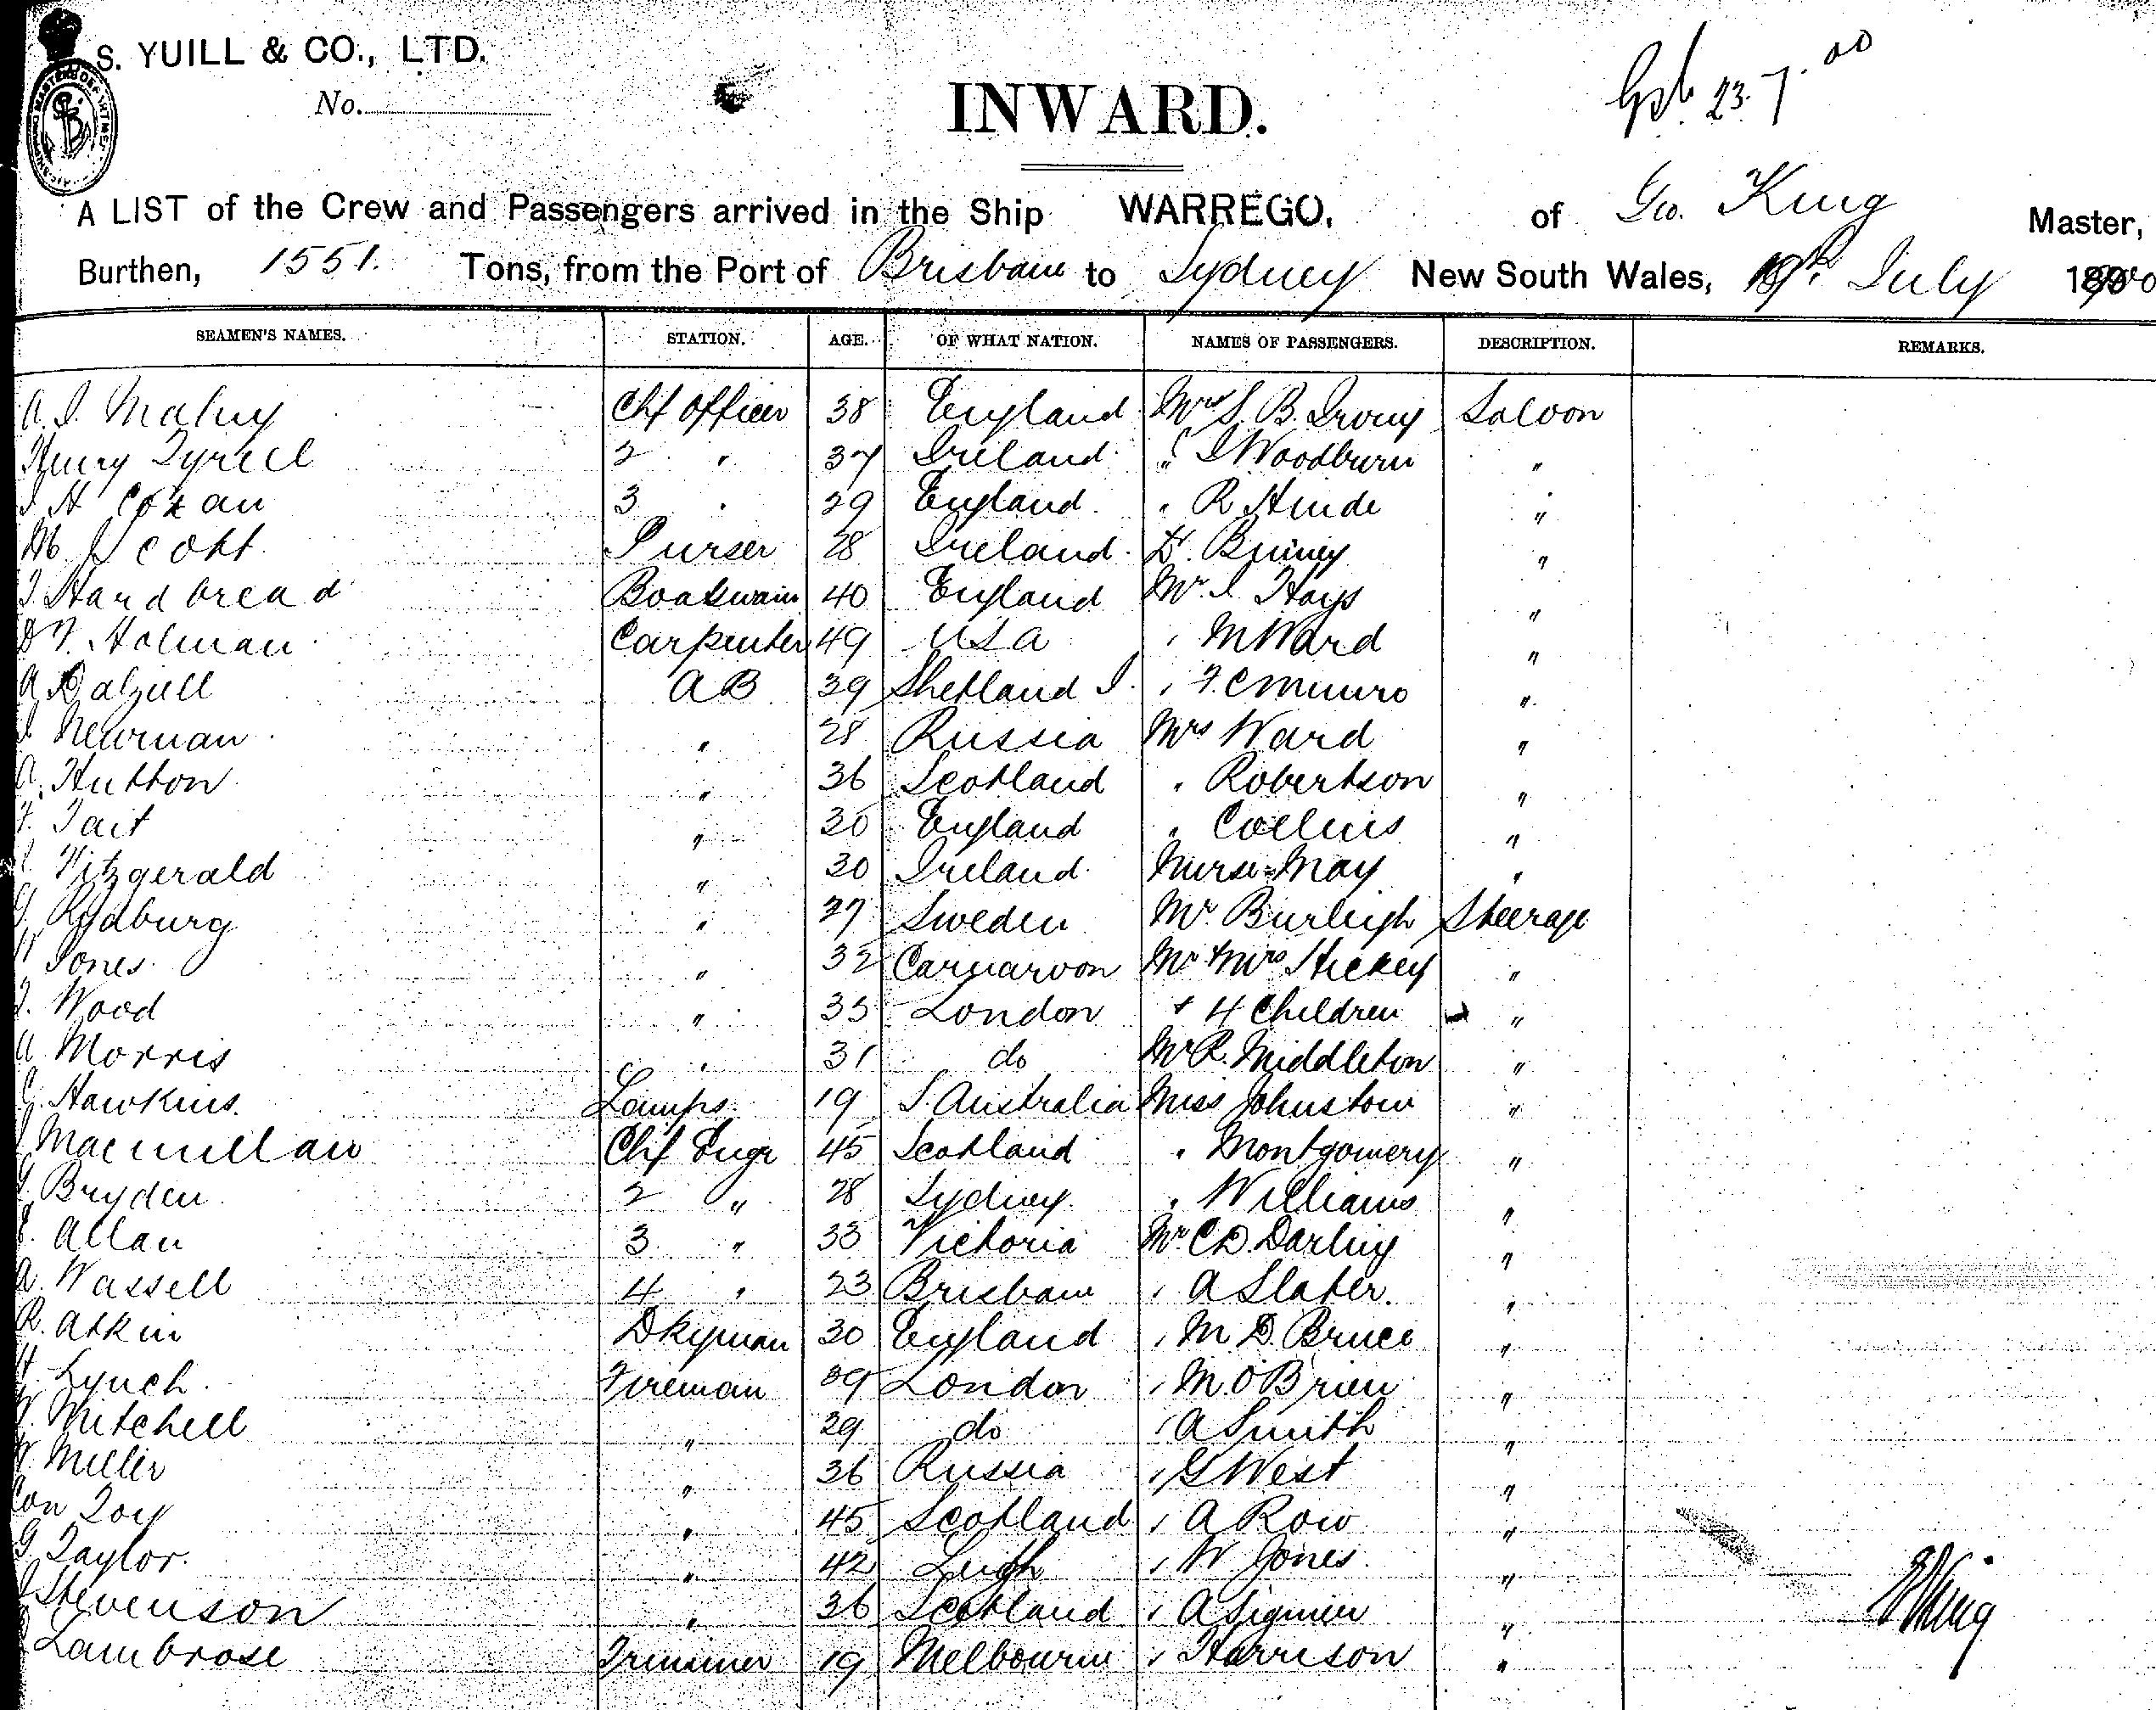 S. YUILL & CO., LTD.
No.
INWARD.
23.7.00
A LIST of the Crew and Passengers arrived in the Ship WARREGO, of Geo. King Master,
Burthen, 1551. Tons, from the Port of Brisbane to Sydney New South Wales, 19th July 1900
SEAMEN'S NAMES. STATION. AGE. OF WHAT NATION. NAMES OF PASSENGERS. DESCRIPTION. REMARKS.
Chf Officer 38 England Mrs S. B. Irving Saloon
Henry Tyrell 2 " 37 Ireland " J Woodburn "
J H Cozan 3 " 29 England " R Hinde "
Scott Purser 28 Ireland Dr. Binney "
J. Handbread Boatswain 40 England Mr. J Hays "
Holman Carpenter 49 USA " M Ward "
A Dalzell AB 39 Shetland I. " F. C Munro "
J Newman " 28 Russia Mrs Ward "
A. Hutton " 36 Scotland " Robertson "
F. Tait " 30 England " Collins "
Fitzgerald " 30 Ireland Nurse May "
G. Rydburg " 27 Sweden Mr Burleigh Steerage
Jones " 32 Carnarvon Mr & Mrs Hickey "
J. Wood " 35 London & 4 Children "
A Morris " 31 do Mr R. Middleton "
C. Hawkins. Lamps. 19 S. Australia Miss Johnstow "
J Macmillan Chf Engr 45 Scotland " Montgomery "
Bryden 2 " 28 Sydney " Williams "
Allan 3 " 33 Victoria Mr C D. Darling "
A. Wassell 4 " 23 Brisbane " A Slater. "
R. Atkin Dkyman 30 England " M D. Bruce "
H. Lynch Fireman 39 London " M. O'Brien "
W. Mitchell " 29 do " A Smith "
Miller " 36 Russia " G West "
Con Toy " 45 Scotland " A Row "
G Taylor. " 42 Leith " W Jones. "
J Stevenson " 36 Scotland " A Signier "
Lambrose Trimmer 19 Melbourne " Harrison "
G King